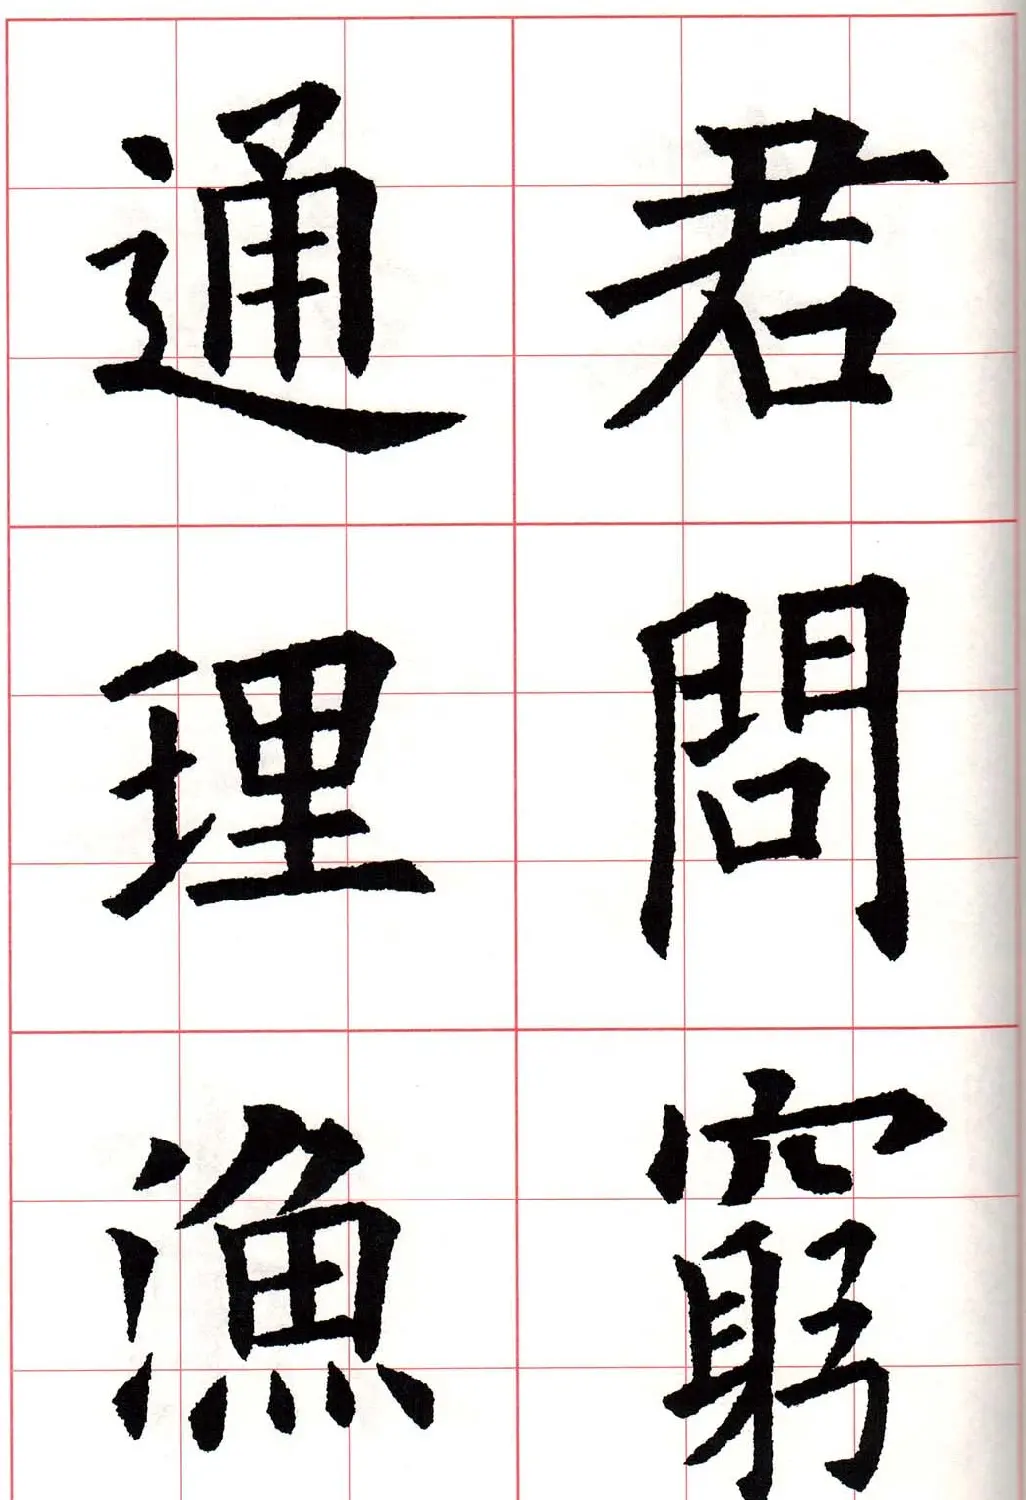 君問窮
通理漁